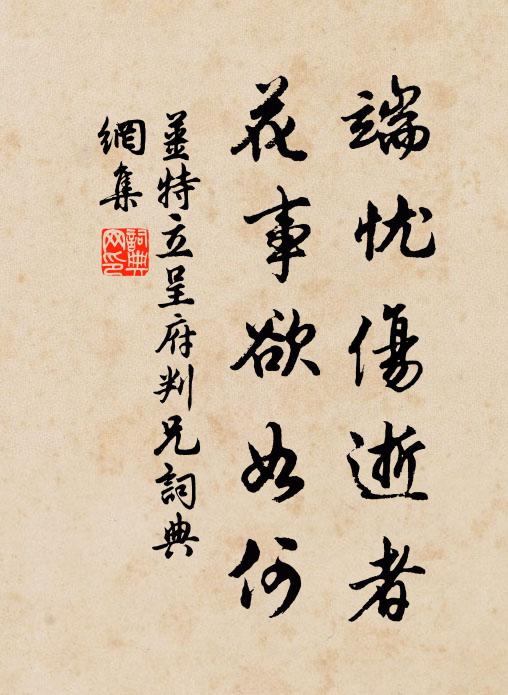 端忧傷逝者
花事欲如何
姜特立呈府判兄詞典
網集
詞典網印